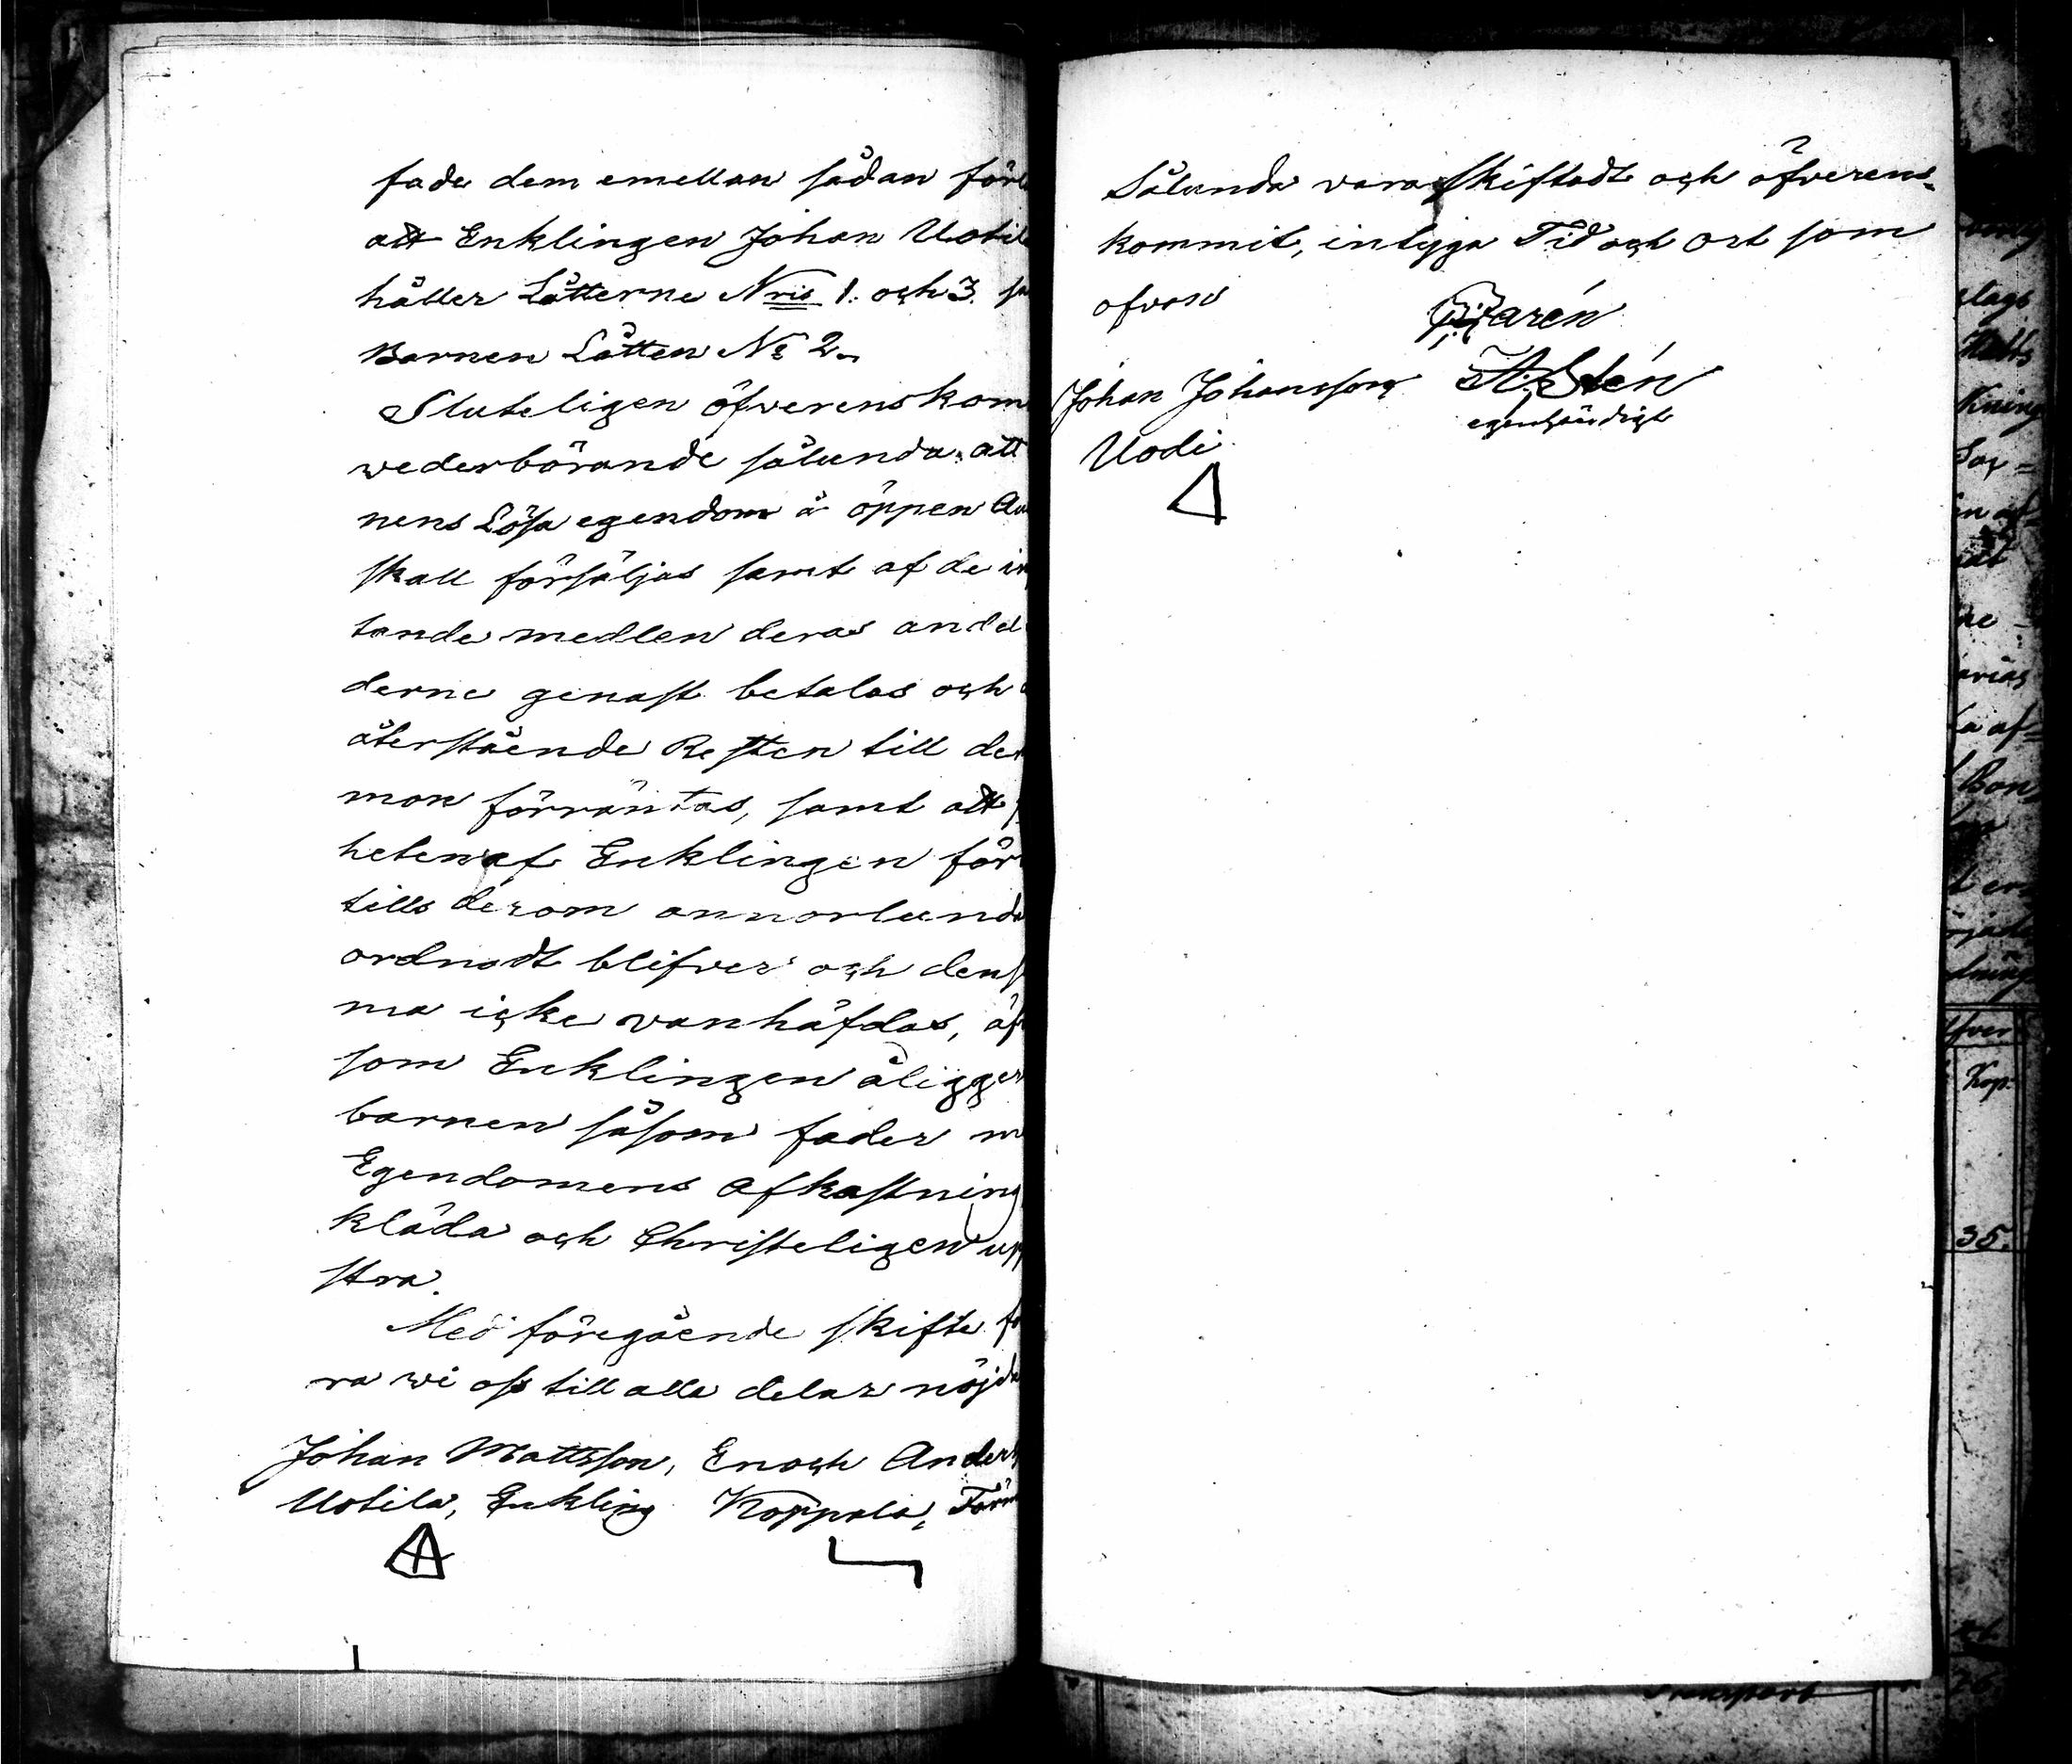 fade dem emellan sådan förl
att Enklingen Johan Uotil
håller Lotterne Nris 1. och 3. sa
Barnen Lotten No 2.
Sluteligen öfverenskom
wederbörande sålunda, att
nens Lösa egendom å öppen Au
skall försäljas samt af de in
tande medlen deras andel
derne genast betalas och
återstående Resten till der
mon förräntas, samt att
heten af Enklingen för
tills derom annorlunda
ordnadt blifver och dens
ma icke vanhäfdas, äf
som Enklingen åligger
barnen såsom fader m
Egendomens afkastning
kläda och Christeligen upp
stra.
Med föregående skifte fö
ra wi oss till alla delar nöjda
Johan Mattsson, Enoch Anders
Uotila, Enkling Koppala, Förm
Sålunda vara skiftadt och öfverens-
kommit, intyga Tid och ort som
ofvan
Parén
Johan Johansson A. Stén
egenhändigt
Uodi
lags
kning
Bon
fver
Kop.
35.
26
Transport